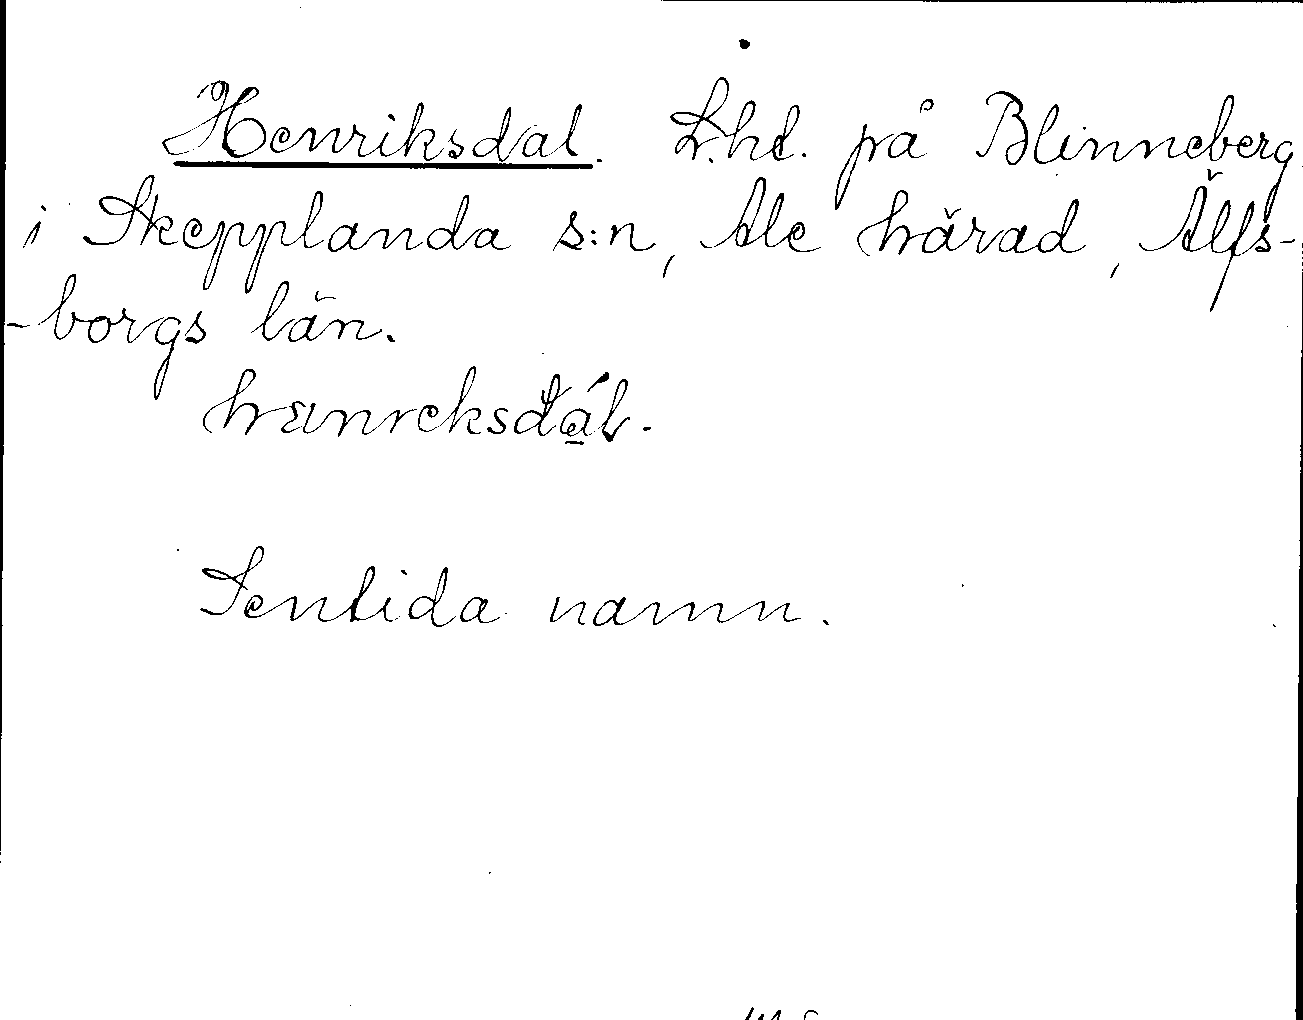 Henriksdal. L.ht. på Blinneberg
i Skepplanda s:n, Ale härad, Älfs-
-borgs län.
hænreksdá̱l.
Sentida namn.